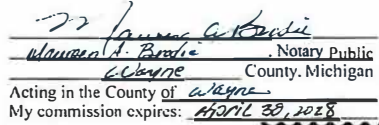 Maureen A. Brodie
Maureen A. Brodie, Notary Public
Wayne County, Michigan
Acting in the County of Wayne
My commission expires: April 30, 2028